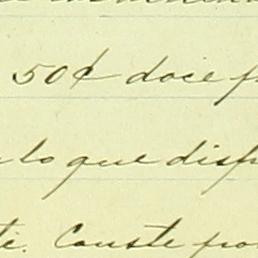 50¢ doce f
lo que disp
te. Conste por